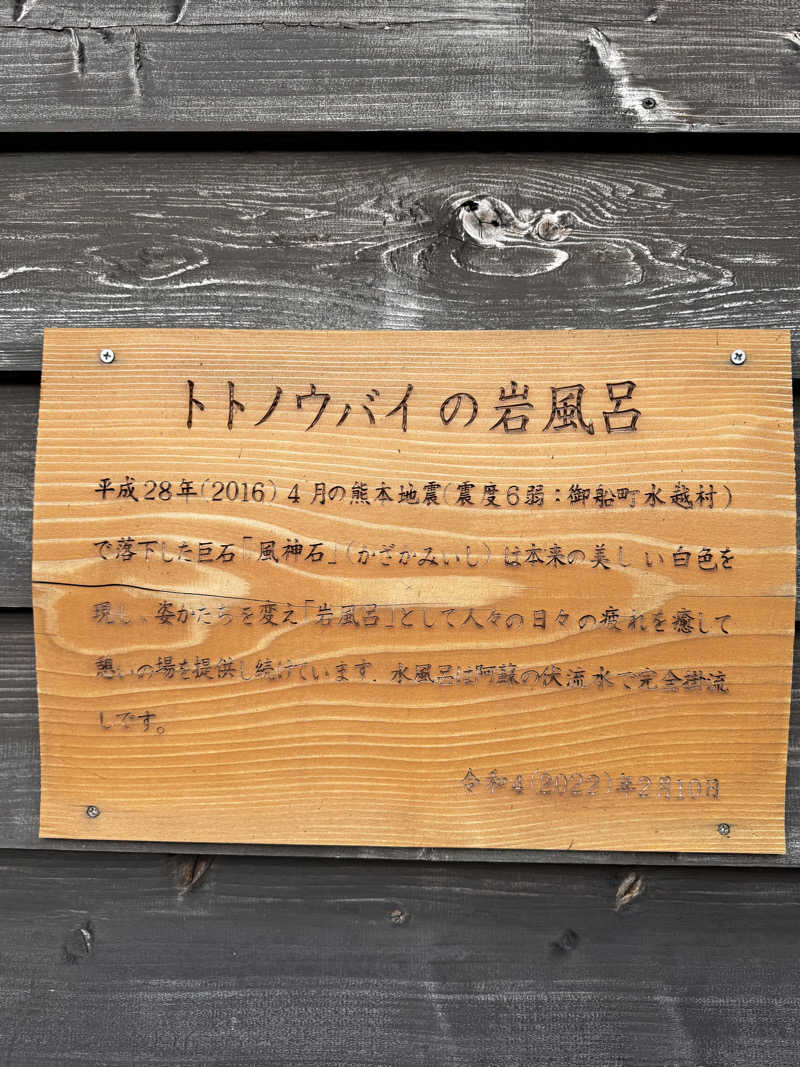 トトノウバイの岩風呂
平成28年(2016)4月の熊本地震(震度6弱:御船町水越村)
で落下した巨石「風神石」(かざかみいし)は本来の美しい白色を
現し、姿かたちを変え「岩風呂」として人々の日々の疲れを癒して
憩いの場を提供し続けています.水風呂は阿蘇の伏流水で完全掛流
しです。
令和4(2022)年2月10日